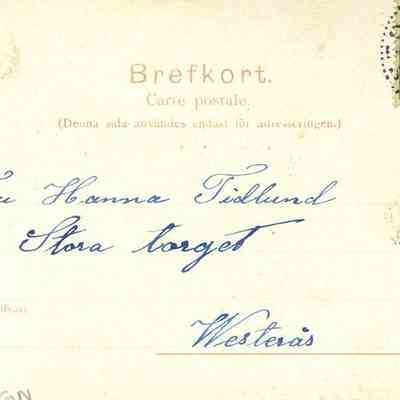 Brefkort.
Carte postale.
(Denna sida användes endast för adresseringen.)
Hanna Tidlund
Stora torget
Westerås